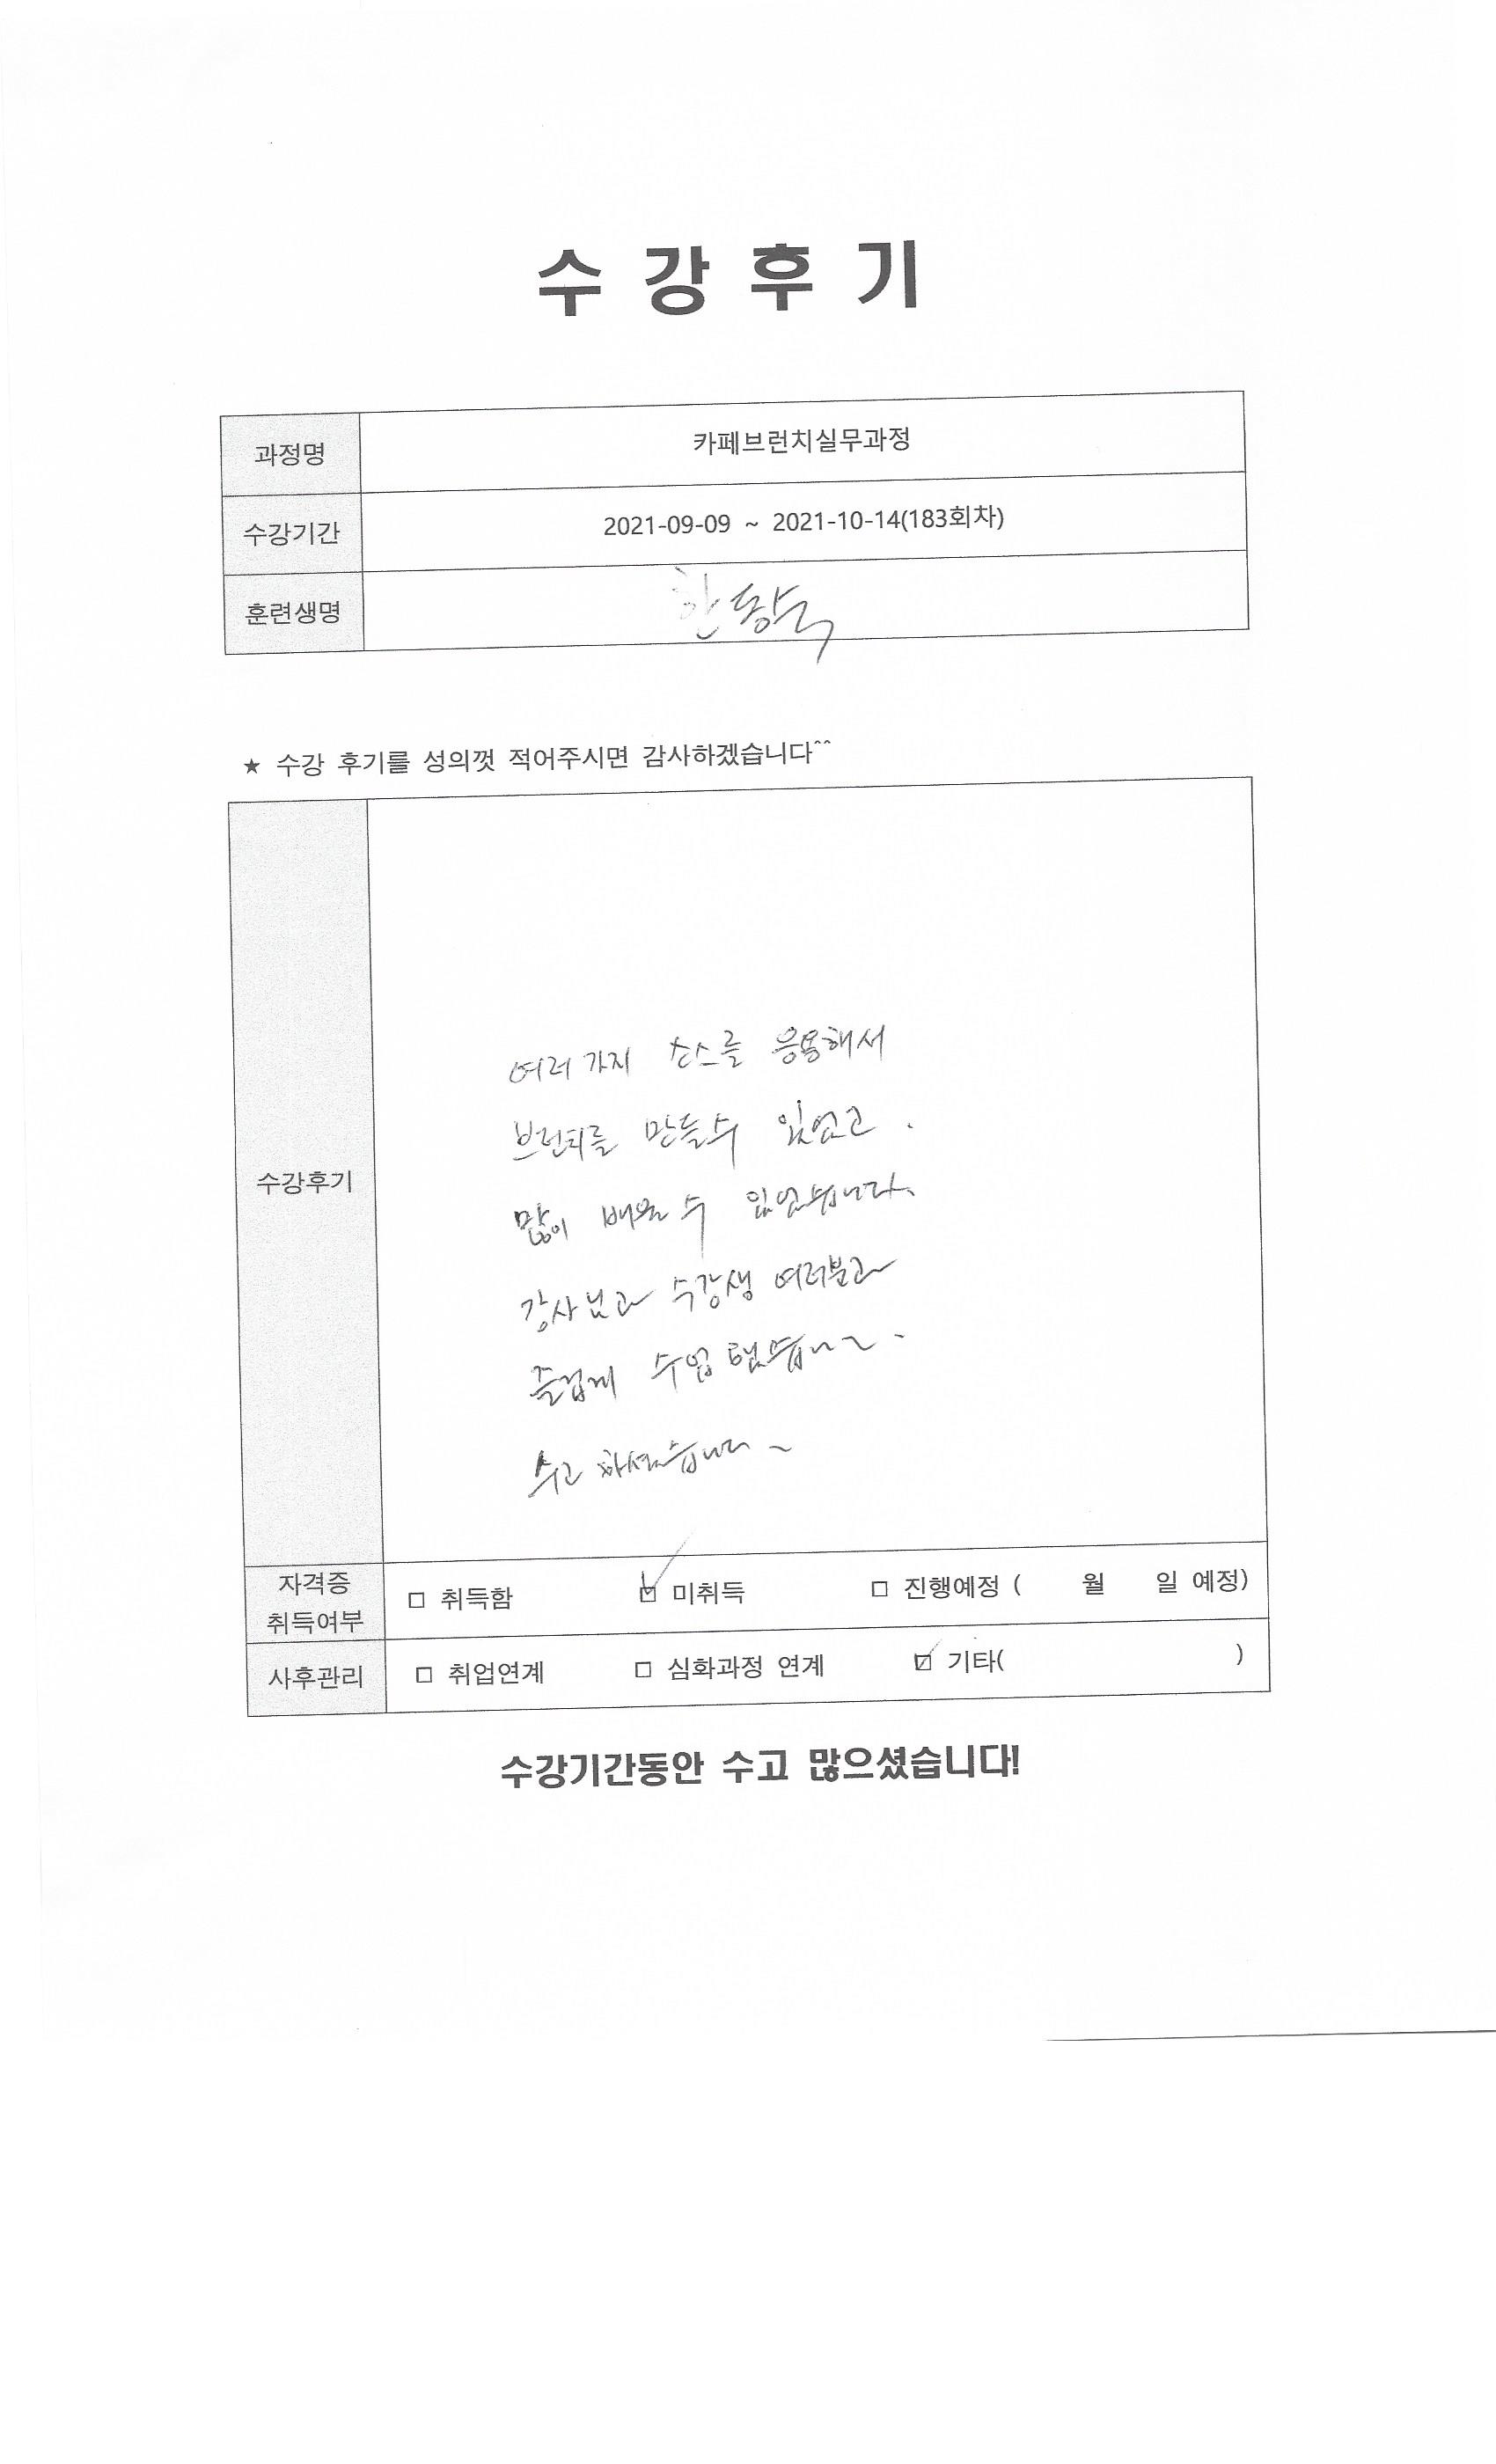 수 강 후 기
과정명 카페브런치실무과정
수강기간 2021-09-09 ~ 2021-10-14(183회차)
훈련생명 한
★ 수강 후기를 성의껏 적어주시면 감사하겠습니다^^
여러가지 소스를 응용해서
브런치를 만들수 있었고.
많이 배울 수 있었습니다.
강사님과 수강생 여러분과
즐겁게 수업 했습니다.
수고 하셨습니다~
수강후기
자격증 취득여부 □ 취득함 ☑ 미취득 □ 진행예정 ( 월 일 예정)
사후관리 □ 취업연계 □ 심화과정 연계 ☑ 기타( )
수강기간동안 수고 많으셨습니다!